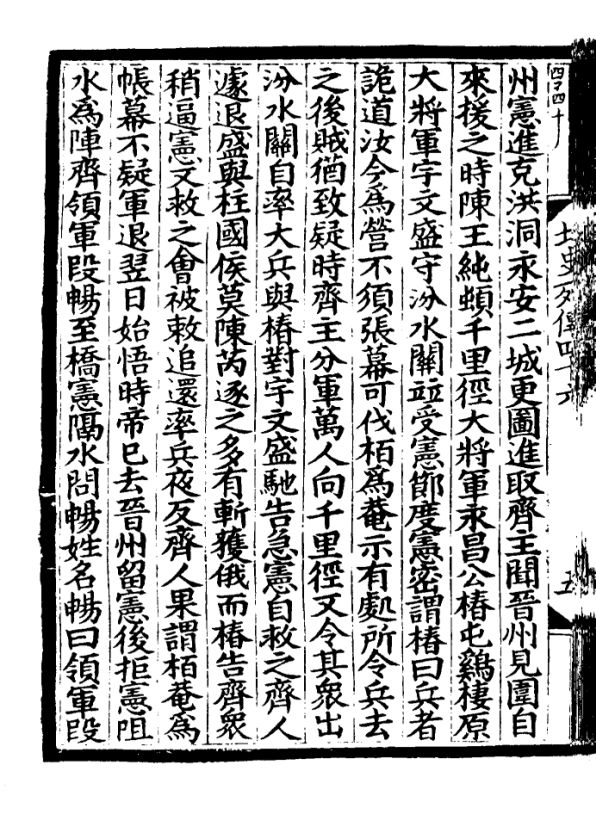 州憲進克洪洞永安二城更圖進取齊主聞晉州見圍自
來援之時陳王純頓千里徑大將軍永昌公椿屯鷄棲原
大將軍宇文盛守汾水關並受憲節度憲密謂椿曰兵者
詭道汝今爲營不須張幕可伐栢爲菴示有處所令兵去
之後賊猶致疑時齊王分軍萬人向千里徑又令其衆出
汾水關自率大兵與椿對宇文盛馳告急憲自救之齊人
遽退盛與柱國侯莫陳芮逐之多有斬獲俄而椿告齊衆
稍逼憲又救之會被敕追還率兵夜反齊人果謂栢菴爲
帳幕不疑軍退翌日始悟時帝已去晉州留憲後拒憲阻
水爲陣齊領軍段暢至橋憲隔水問暢姓名暢曰領軍段